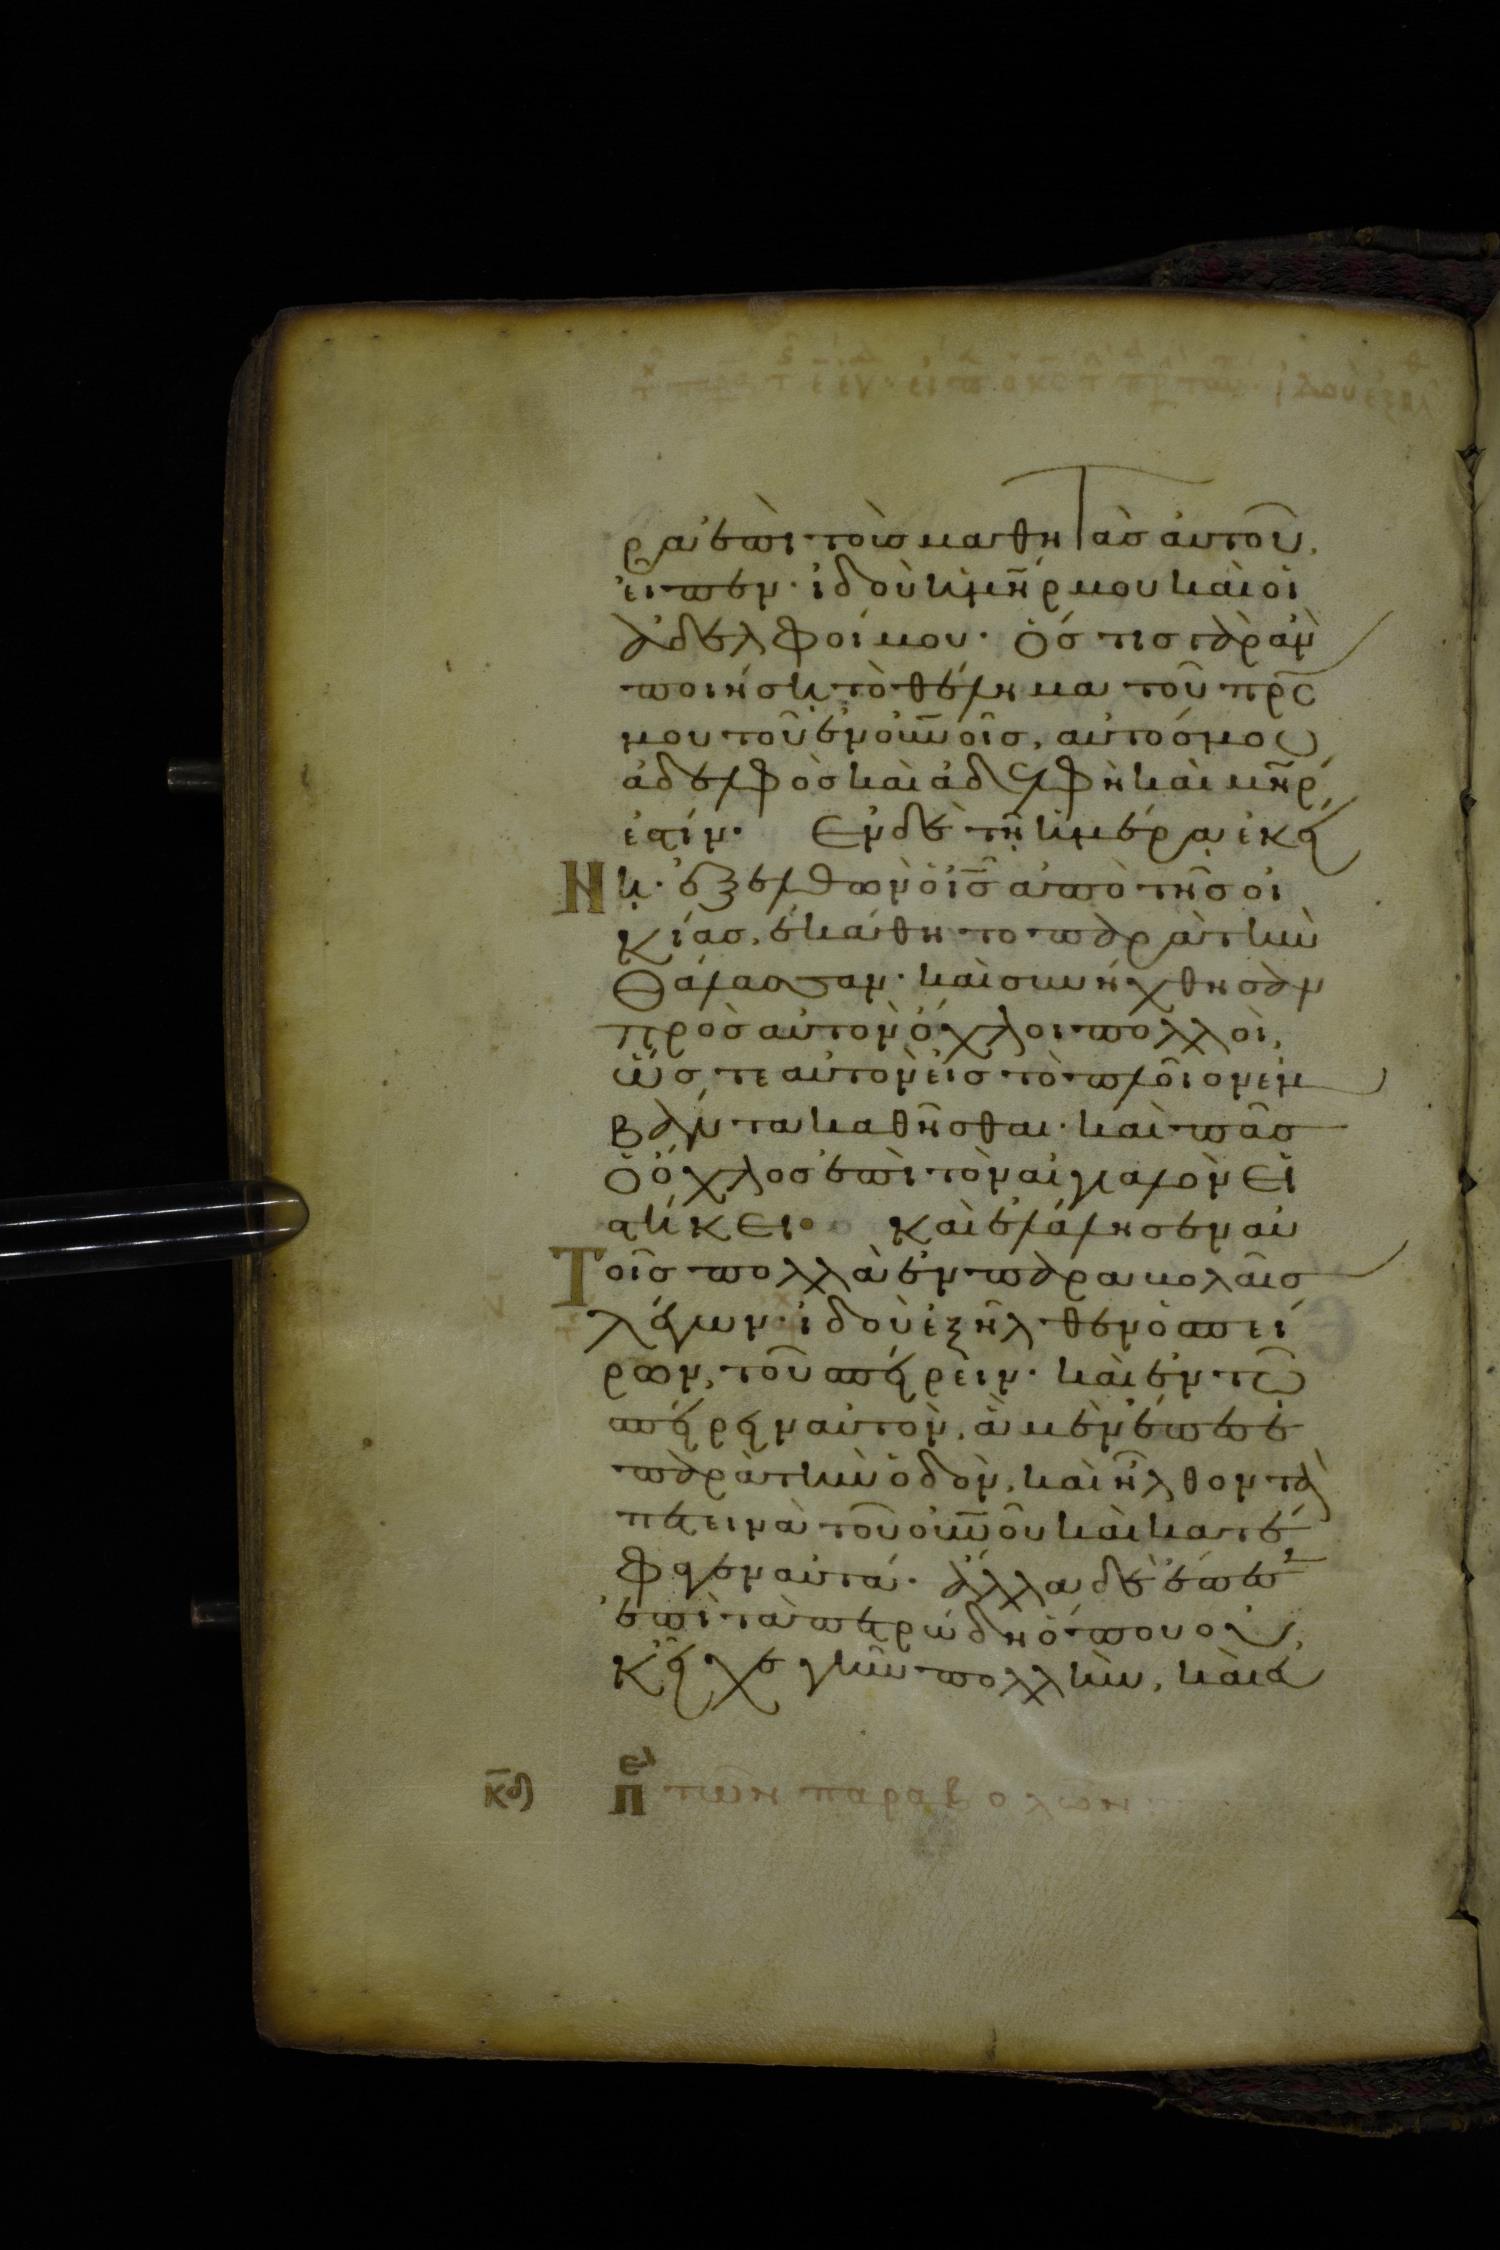 ρα ἐπὶ τοὺς μαθητὰς αὐτοῦ,
εἶπεν· ἰδοὺ ἡ μη̅ρ μου καὶ οἱ
ἀδελφοί μου· Ὅστις γὰρ ἀν
ποιήσῃ τὸ θέλημα τοῦ πρ̅ς
μου τοῦ ἐν οὐν̅οῖς, αὐτός μου
ἀδελφὸς καὶ ἀδελφὴ καὶ μη̅ρ
ἐστίν· Ἐν δὲ τῇ ἡμέρᾳ ἐκεί
νῃ· ἐξελθὼν ὁ ι̅ς̅ ἀπὸ τῆς οἰ
κίας, ἐκάθητο παρὰ τὴν
θάλασσαν· καὶ συνήχθησαν
πρὸς αὐτὸν ὄχλοι πολλοὶ,
ὥστε αὐτὸν εἰς τὸ πλοῖον ἐμ
βάντα καθῆσθαι· καὶ πᾶς
ὁ ὄχλος ἐπὶ τὸν αἰγιαλὸν εἱ
στήκει· Καὶ ἐλάλησεν αὐ
τοῖς πολλὰ ἐν παραβολαῖς
λέγων· ἰδοὺ ἐξῆλθεν ὁ σπεί
ρων, τοῦ σπείρειν· καὶ ἐν τῶ
σπείρειν αὐτὸν, ἃ μὲν ἔπεσε
παρὰ τὴν ὁδὸν, καὶ ἦλθον τὰ
πετεινὰ τοῦ οὐν̅οῦ καὶ κατέ
φαγεν αὐτά· ἄλλα δὲ ἔπεσ
ἐπὶ τὰ πετρώδη ὅπου οὐκ
εἶχε γῆν πολλὴν, καὶ εὐ
κδ̅ ΠΕ τῶν παραβολῶν